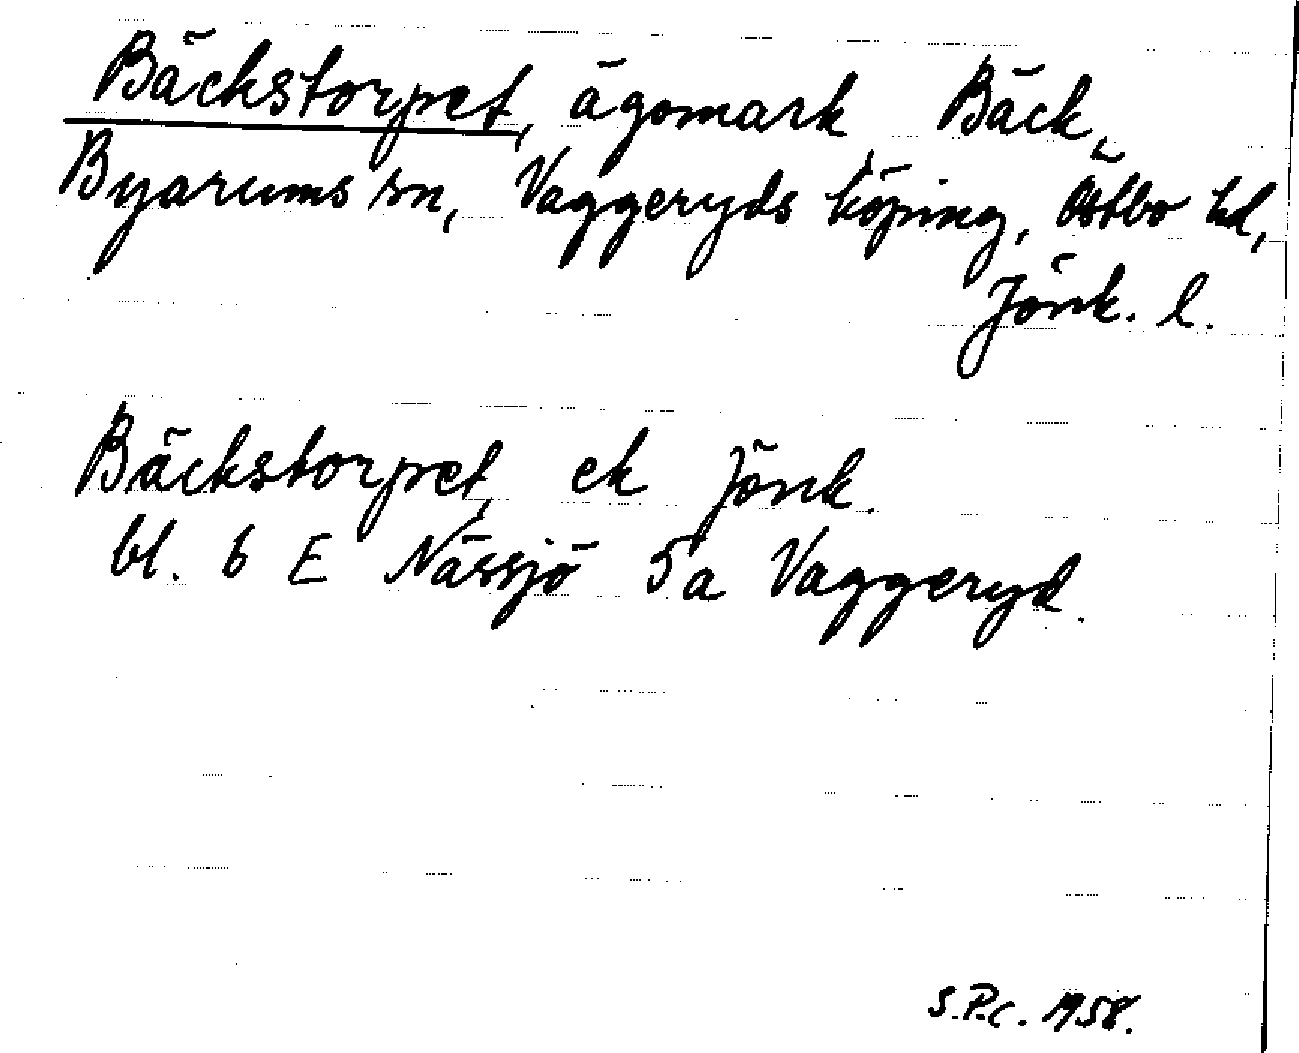 Bäckstorpet, ägomark Bäck,
Byarums sn, Vaggeryds köping, Östbo hd,
Jönk. l.
Bäckstorpet, ek Jönk.
bl. 6 E Nässjö 5a Vaggeryd.
S.P.C. 1958.